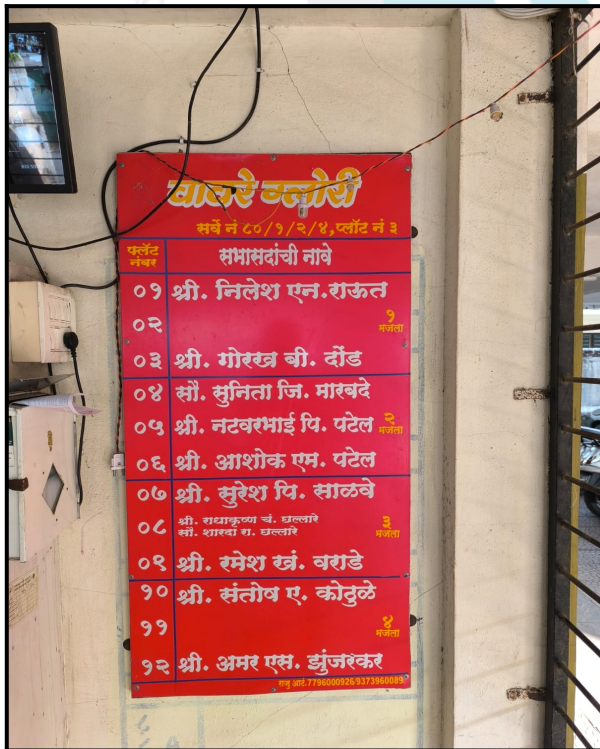 घावरे ग्लोरी
सर्वे नं ८०/१/२/४,प्लॉट नं ३
फ्लॅट नंबर सभासदांची नावे
०१ श्री. निलेश एन.राऊत
०२ १ मजला
०३ श्री. गोरख बी. दोंड
०४ सौ. सुनिता जि. मारबदे
०५ श्री. नटवरभाई पि. पटेल २ मजला
०६ श्री. आशोक एम. पटेल
०७ श्री. सुरेश पि. साळवे
०८ श्री. राधाकृष्ण चं. छल्लारे
सौ. शारदा रा. छल्लारे ३ मजला
०९ श्री. रमेश खं. वराडे
१० श्री. संतोष ए. कोठुळे
११ ४ मजला
१२ श्री. अमर एस. झुंजरकर
राजु आर्ट.7796000926/9373960089